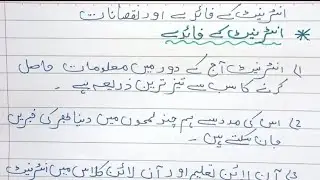 انٹرنیٹ کے فائدے اور نقصانات
* انٹرنیٹ کے فائدے
1) انٹرنیٹ آج کے دور میں معلومات حاصل
کرنے کا سب سے تیز ترین ذریعہ ہے ۔
2) اس کی مدد سے ہم چند لمحوں میں دنیا بھر کی خبریں
جان سکتے ہیں ۔
3) آن لائن تعلیم اور آن لائن کلاس میں انٹرنیٹ